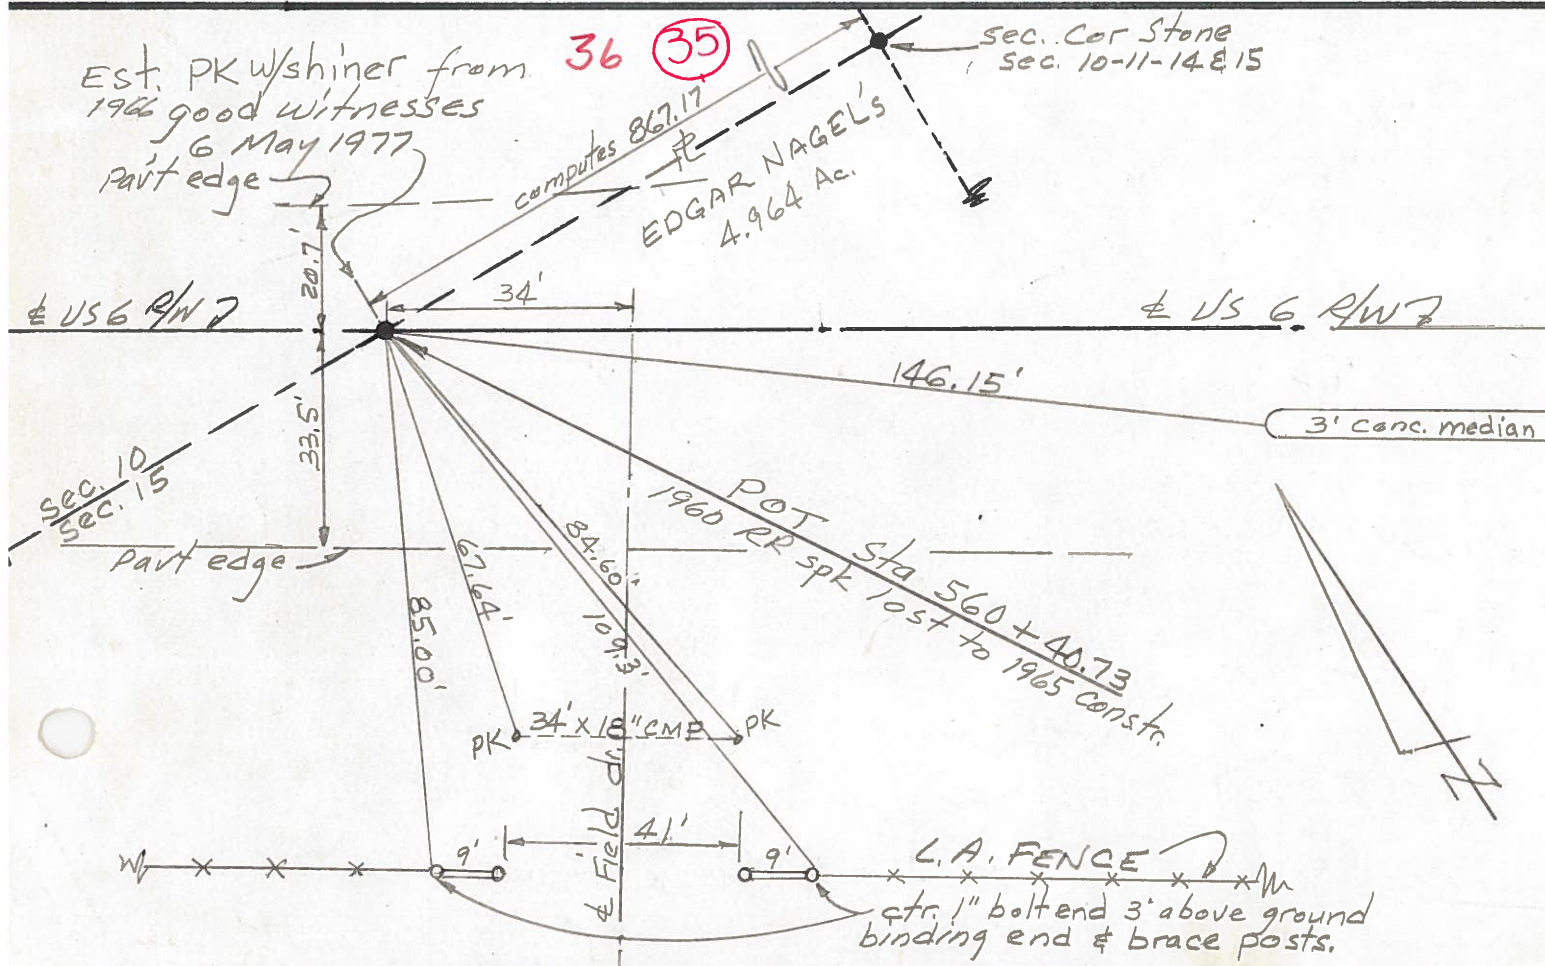 36 35
Est. PK w/shiner from
1966 good witnesses
6 May 1977
Pav't edge
sec. Cor Stone
sec. 10-11-14 & 15
computes 867.17
EDGAR NAGEL'S
4.964 Ac.
20.7'
34'
℄ US 6 R/W
℄ US 6 R/W
146.15'
3' conc. median
33.5'
Sec. 10
Sec. 15
Pav't edge
POT Sta 560 + 40.73
1960 RR spk lost to 1965 constr.
67.64'
84.60'
109.3'
85.00'
PK 34' x 18" CMP PK
℄ Field dr
41'
9'
9'
L.A. FENCE
ctr. 1" bolt end 3' above ground
binding end & brace posts.
N